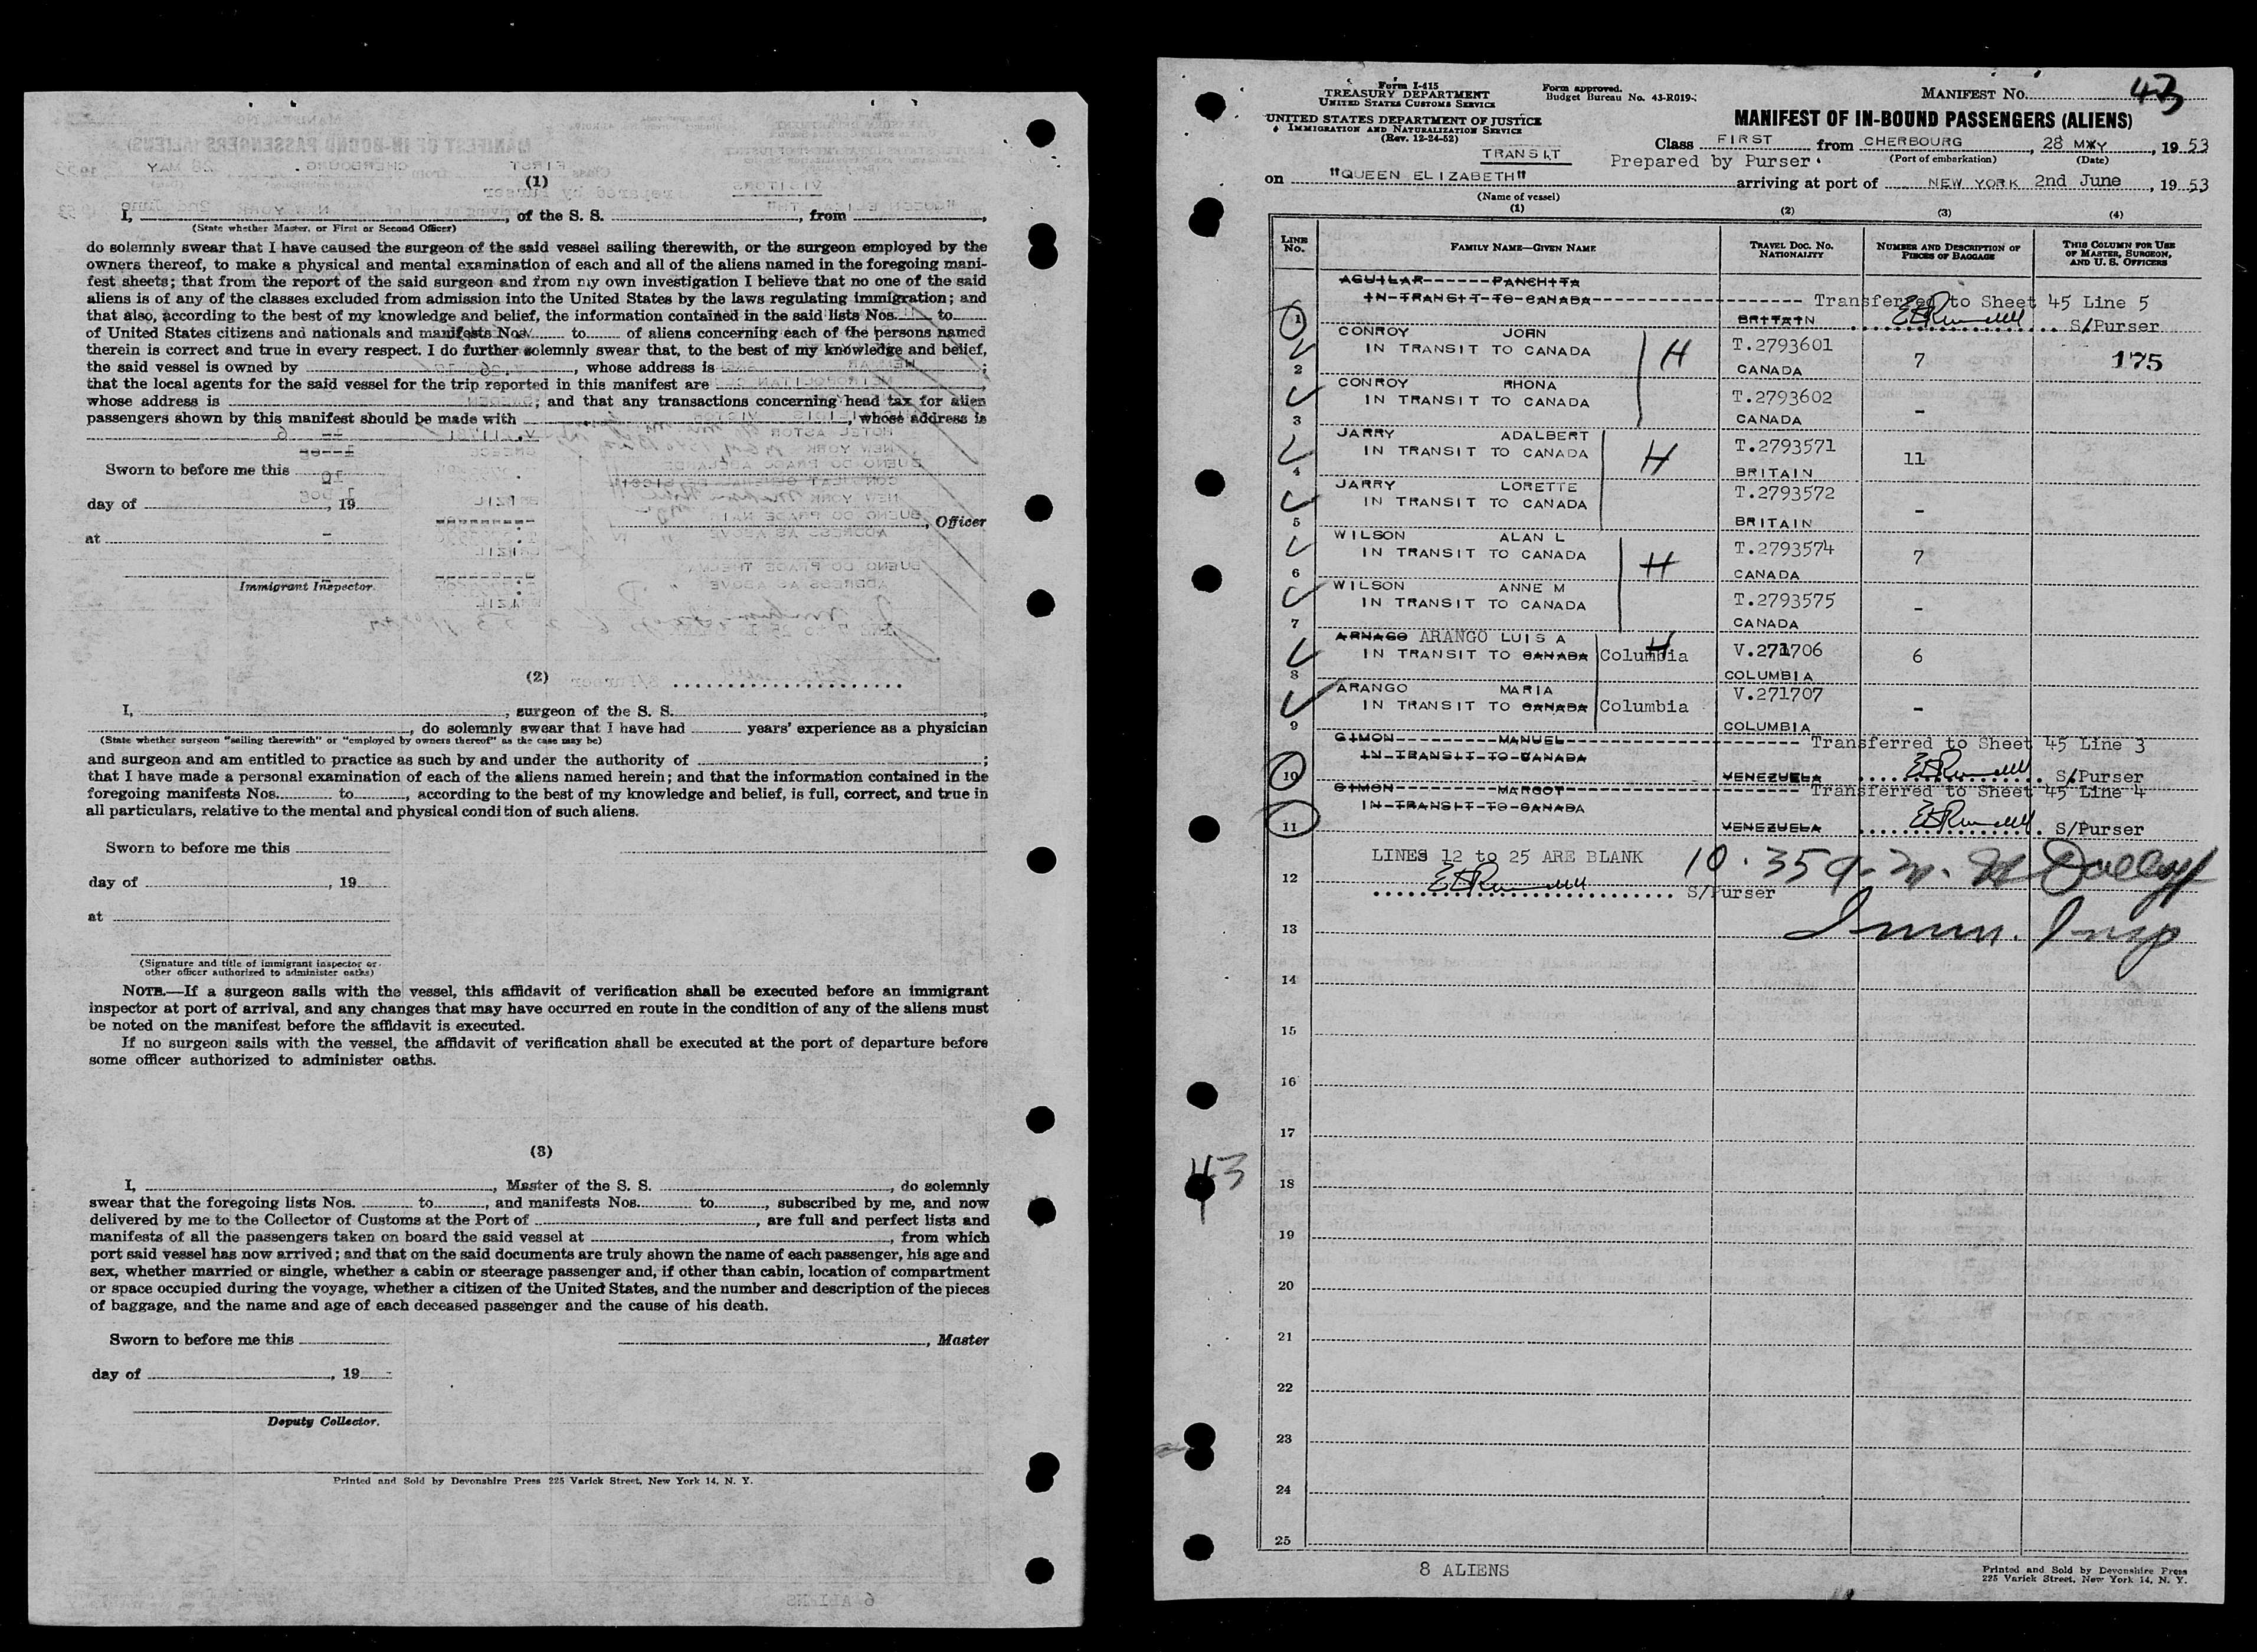 (1)
I, , of the S. S. , from ,
(State whether Master, or First or Second Officer)
do solemnly swear that I have caused the surgeon of the said vessel sailing therewith, or the surgeon employed by the
owners thereof, to make a physical and mental examination of each and all of the aliens named in the foregoing mani-
fest sheets; that from the report of the said surgeon and from my own investigation I believe that no one of the said
aliens is of any of the classes excluded from admission into the United States by the laws regulating immigration; and
that also, according to the best of my knowledge and belief, the information contained in the said lists Nos. to
of United States citizens and nationals and manifests Nos. to of aliens concerning each of the persons named
therein is correct and true in every respect. I do further solemnly swear that, to the best of my knowledge and belief,
the said vessel is owned by , whose address is ;
that the local agents for the said vessel for the trip reported in this manifest are ,
whose address is ; and that any transactions concerning head tax for alien
passengers shown by this manifest should be made with , whose address is
Sworn to before me this
day of , 19
, Officer
at
Immigrant Inspector.
(2)
I, , surgeon of the S. S. ,
, do solemnly swear that I have had years' experience as a physician
(State whether surgeon "sailing therewith" or "employed by owners thereof" as the case may be)
and surgeon and am entitled to practice as such by and under the authority of ;
that I have made a personal examination of each of the aliens named herein; and that the information contained in the
foregoing manifests Nos. to , according to the best of my knowledge and belief, is full, correct, and true in
all particulars, relative to the mental and physical condition of such aliens.
Sworn to before me this
day of , 19
at
(Signature and title of immigrant inspector or
other officer authorized to administer oaths)
NOTE.—If a surgeon sails with the vessel, this affidavit of verification shall be executed before an immigrant
inspector at port of arrival, and any changes that may have occurred en route in the condition of any of the aliens must
be noted on the manifest before the affidavit is executed.
If no surgeon sails with the vessel, the affidavit of verification shall be executed at the port of departure before
some officer authorized to administer oaths.
(3)
I, , Master of the S. S. , do solemnly
swear that the foregoing lists Nos. to , and manifests Nos. to , subscribed by me, and now
delivered by me to the Collector of Customs at the Port of , are full and perfect lists and
manifests of all the passengers taken on board the said vessel at , from which
port said vessel has now arrived; and that on the said documents are truly shown the name of each passenger, his age and
sex, whether married or single, whether a cabin or steerage passenger and, if other than cabin, location of compartment
or space occupied during the voyage, whether a citizen of the United States, and the number and description of the pieces
of baggage, and the name and age of each deceased passenger and the cause of his death.
Sworn to before me this , Master
day of , 19
Deputy Collector.
Printed and Sold by Devonshire Press 225 Varick Street, New York 14, N. Y.
Form I-415
TREASURY DEPARTMENT
UNITED STATES CUSTOMS SERVICE
UNITED STATES DEPARTMENT OF JUSTICE
IMMIGRATION AND NATURALIZATION SERVICE
(Rev. 12-24-52)
Form approved.
Budget Bureau No. 43-R019-
MANIFEST No. 43
MANIFEST OF IN-BOUND PASSENGERS (ALIENS)
Class FIRST from CHERBOURG , 28 MAY , 19 53
TRANSIT
Prepared by Purser (Port of embarkation) (Date)
on "QUEEN ELIZABETH" arriving at port of NEW YORK 2nd June , 19 53
(Name of vessel)
(1) (2) (3) (4)
LINE No. FAMILY NAME—GIVEN NAME TRAVEL DOC. NO. NATIONALITY NUMBER AND DESCRIPTION OF PIECES OF BAGGAGE THIS COLUMN FOR USE OF MASTER, SURGEON, AND U. S. OFFICERS
AGUILAR PANCHITA
IN TRANSIT TO CANADA Transferred to Sheet 45 Line 5
1 BRITAIN S/Purser
CONROY JOHN T.2793601
IN TRANSIT TO CANADA H 7 175
2 CANADA
CONROY RHONA T.2793602
IN TRANSIT TO CANADA -
3 CANADA
JARRY ADALBERT T.2793571
IN TRANSIT TO CANADA H 11
4 BRITAIN
JARRY LORETTE T.2793572
IN TRANSIT TO CANADA -
5 BRITAIN
WILSON ALAN L T.2793574
IN TRANSIT TO CANADA H 7
6 CANADA
WILSON ANNE M T.2793575
IN TRANSIT TO CANADA -
7 CANADA
ARNAGO ARANGO LUIS A H V.271706
IN TRANSIT TO CANADA Columbia 6
8 COLUMBIA
ARANGO MARIA V.271707
IN TRANSIT TO CANADA Columbia -
9 COLUMBIA
GIMON MANUEL Transferred to Sheet 45 Line 3
IN TRANSIT TO CANADA
10 VENEZUELA S/Purser
GIMON MARGOT Transferred to Sheet 45 Line 4
IN TRANSIT TO CANADA
11 VENEZUELA S/Purser
LINES 12 to 25 ARE BLANK 10.35 a.m.
12 S/Purser
13 Imm. Insp
14
15
16
17
43
18
19
20
21
22
23
24
25
8 ALIENS
Printed and Sold by Devonshire Press
225 Varick Street, New York 14, N. Y.